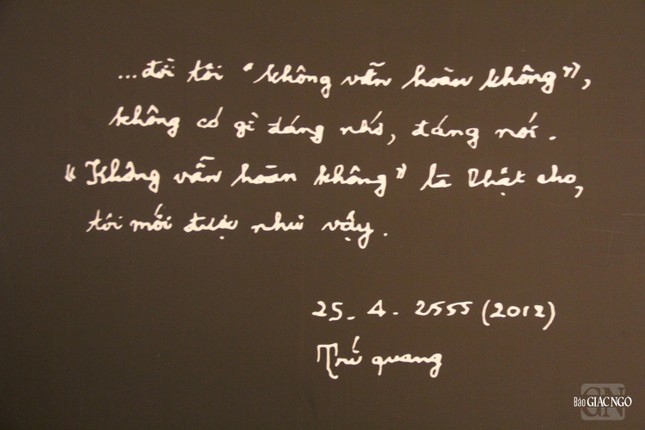 ...đời tôi "không vẫn hoàn không",
không có gì đáng nhớ, đáng nói.
"Không vẫn hoàn không" là Phật cho,
tôi mới được như vậy.
25-4-2555 (2012)
Trí quang
GN
Báo GIÁC NGỘ